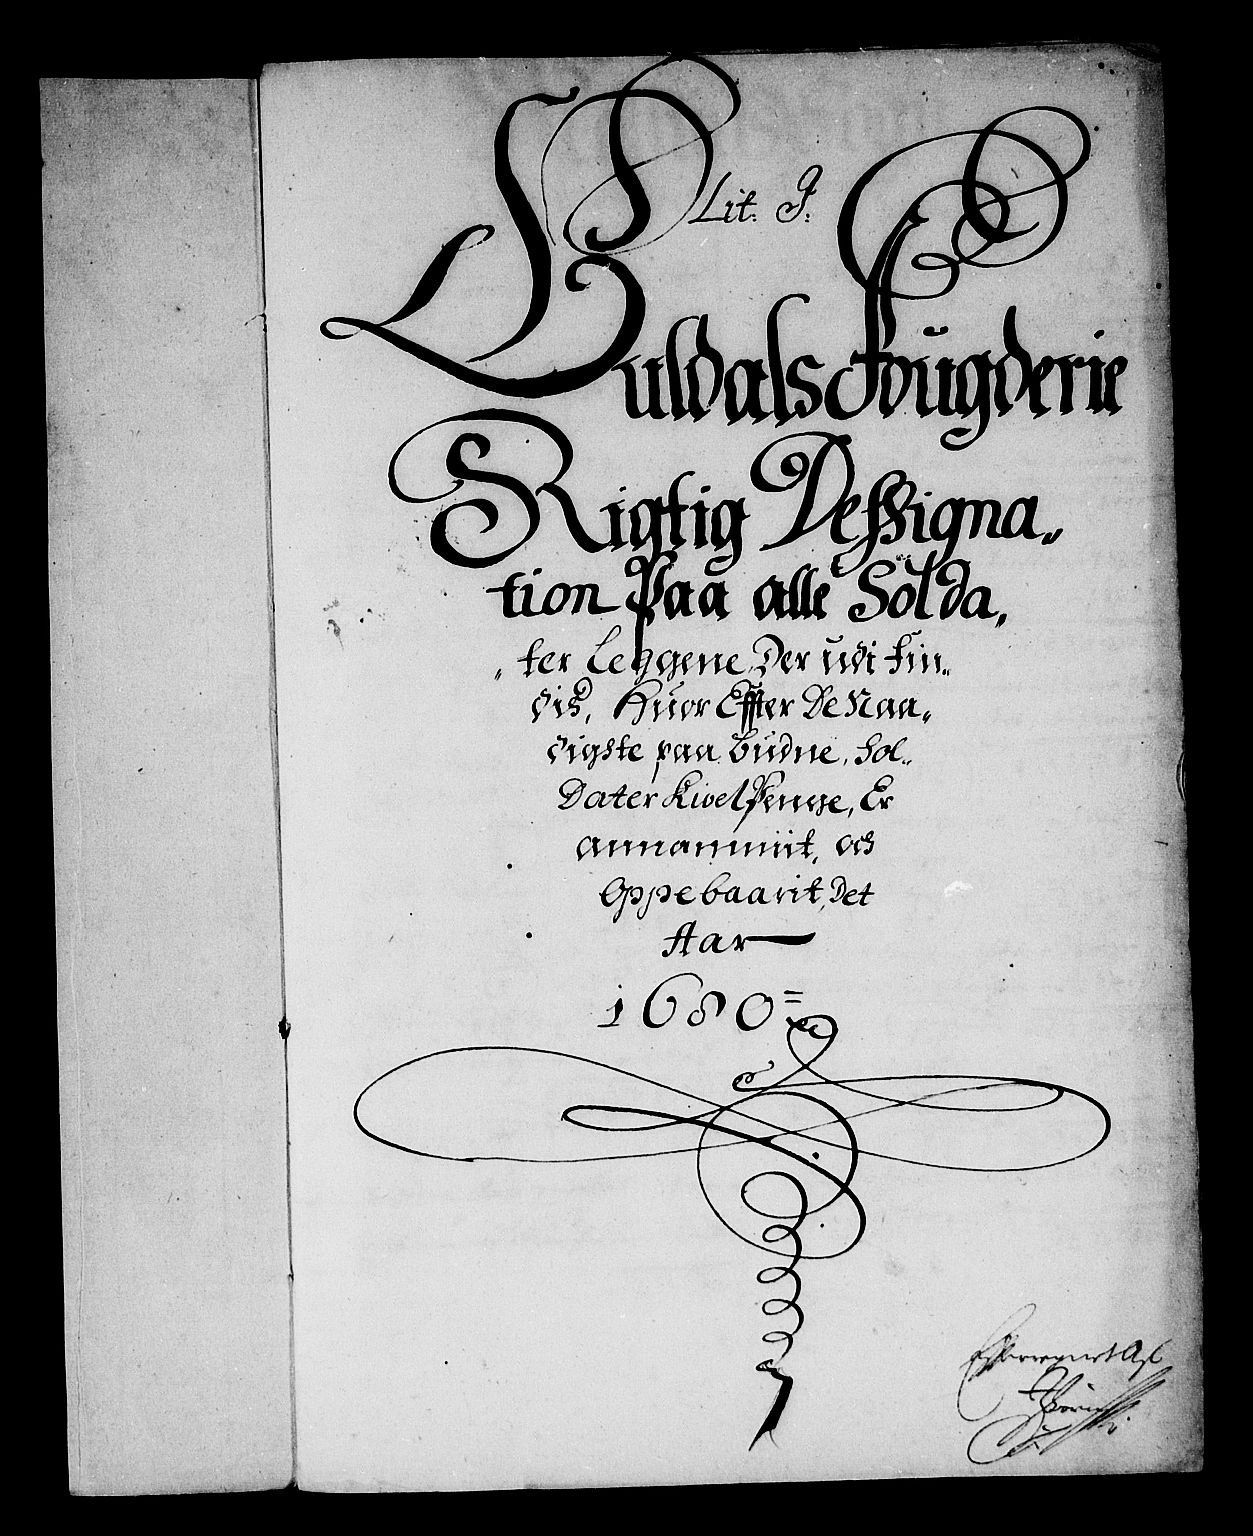 Lit. J:
Guldals Fougderie
Rigtig Dessigna„
tion Paa alle Solda„
„ter Leggene Der udi fin„
dis, Huor Effter De Naa„
digste paa budne Sol„
dater Kivel Penge, Er
annammiit, och
Oppebaarit, Det
Aar
1680